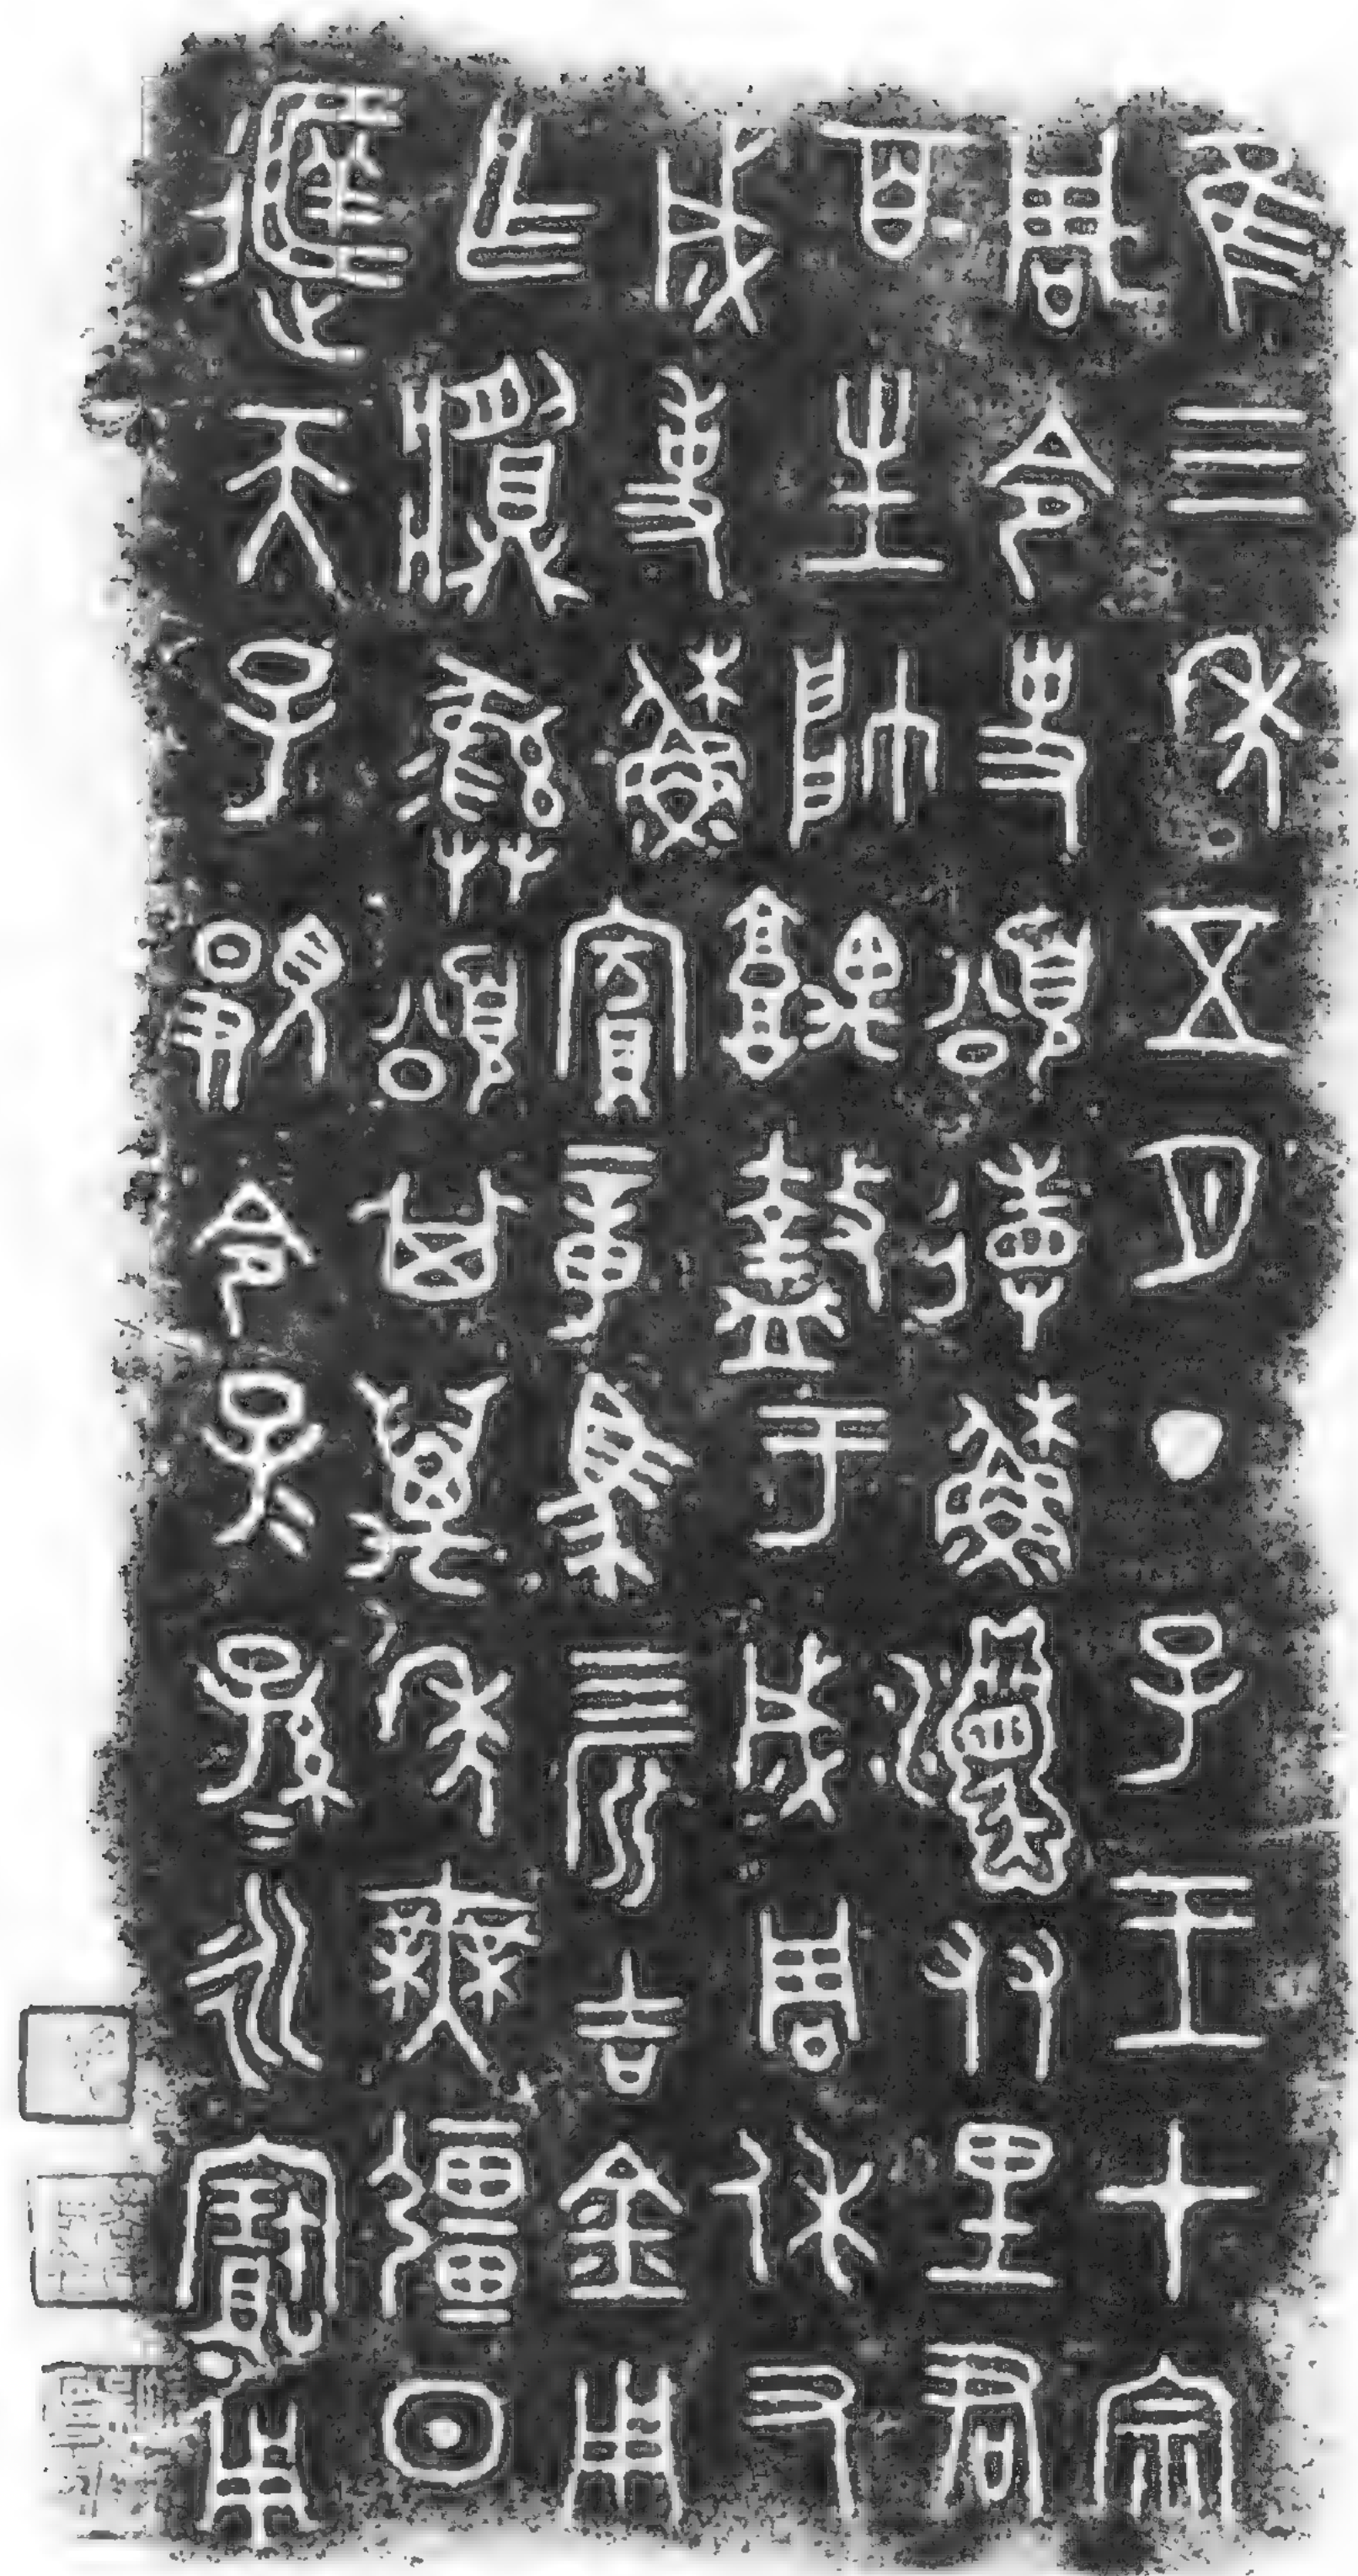 隹三年五月丁子王才宗
周令史頌省穌友里君
百生帥䣄盩于成周休又
成事穌賓章馬四匹吉金用
乍𩰬彝頌其萬年無彊日
天子令子孫=永寶用